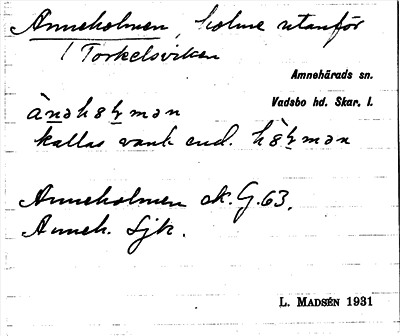 Anneholmen, holme utanför
Torkelsviken
Amnehärads sn.
Vadsbo hd. Skar. l.
kallas vank. end.
Anneholmen ek. G. 63.
Anneh. Sjk.
L. MADSÉN 1931